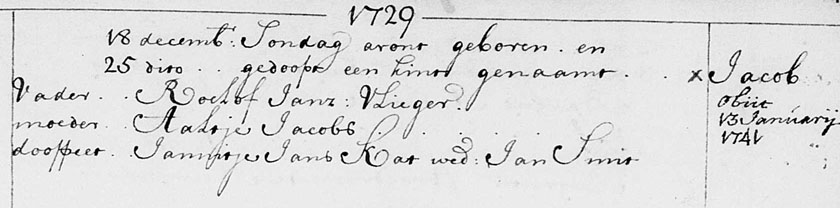 1729
18 decemb: Sondag avont geboren en
25 dito . . gedoopt een kint genaamt . . x Jacob
Vader . . Roelof Janz: Vlieger.
moeder . Aaltje Jacobs . . . .
doopheet . Jannitje Jans Kat wed: Jan Smit
obiit
13 Januarij
1741